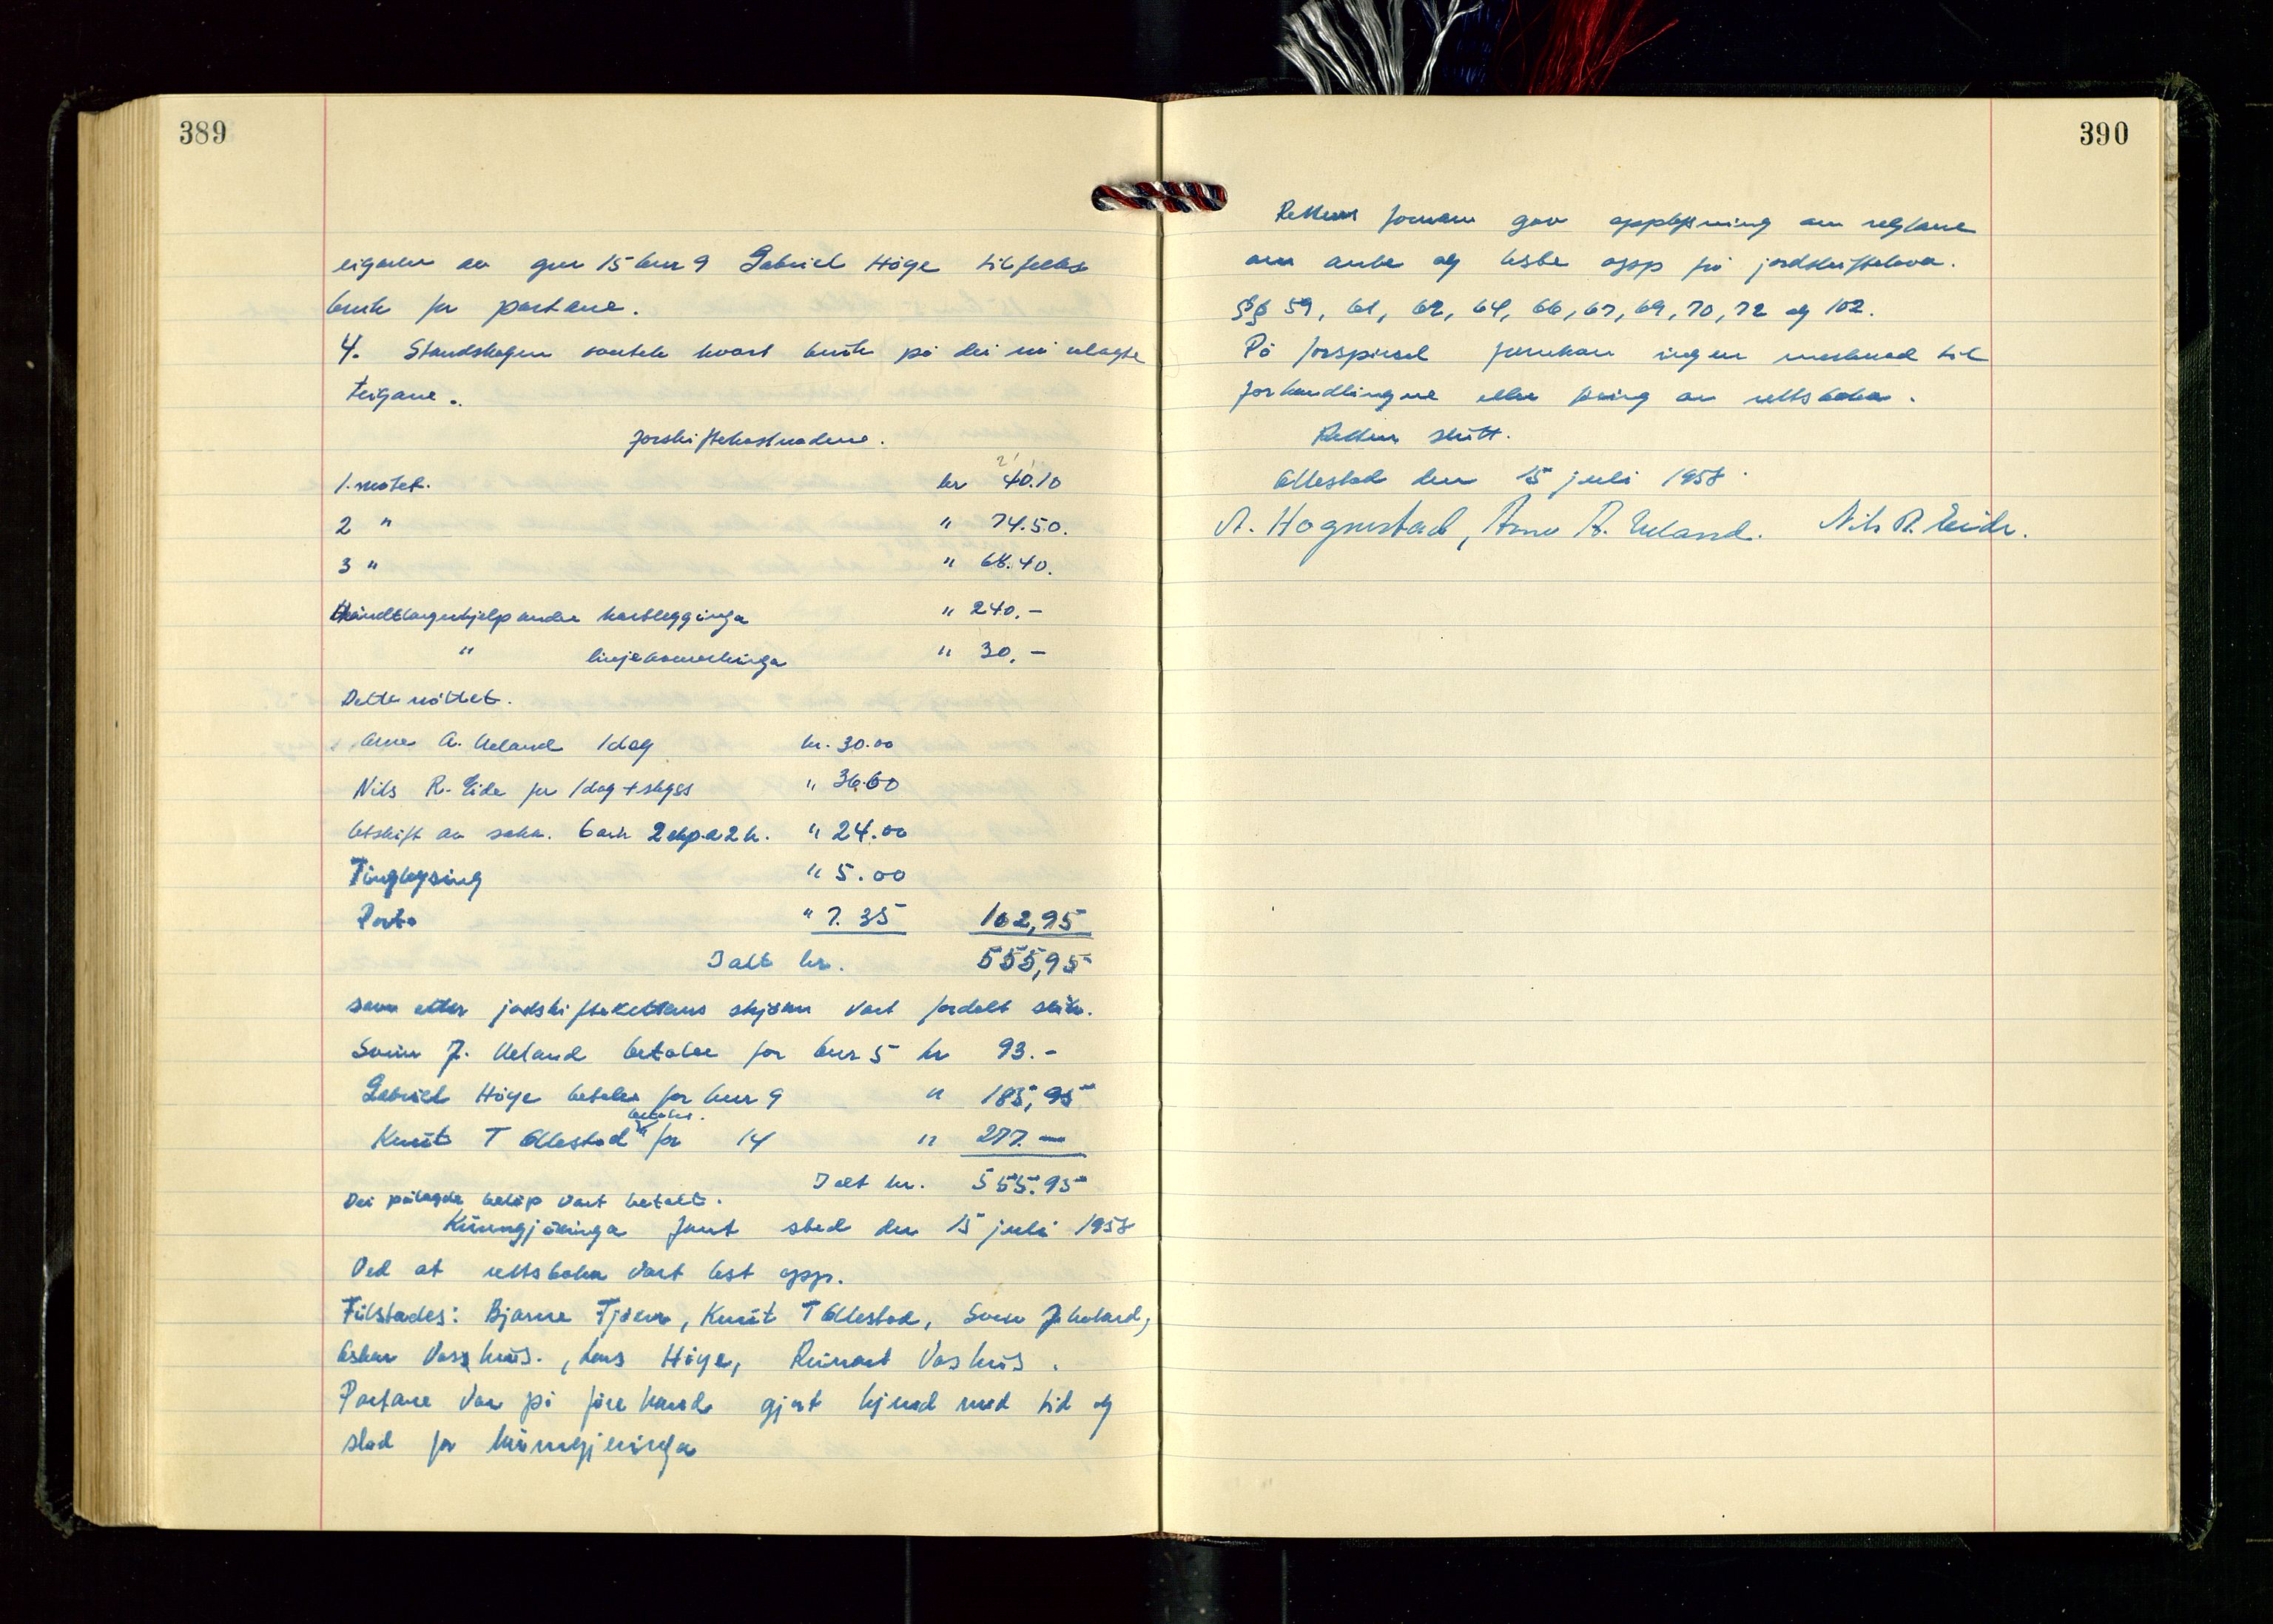 389
eigaren av gnr 15 bnr 9 Gabriel Höge til felles
bruk for partane.
4. Standskogen vart hvart bruk på dei no
teigane.
Jorskiftekostnadene.
1. møtet. kr 40.10
2 " " 74.50.
3 " " 68.40.
Håndtlangerhjelp under kartlegginga " 240.-
" linje " 30.-
Dette möttet.
Arne A. Ueland 1 dag kr. 30.00
Nils R. Eide for 1 dag + skyss " 36.60
Utskift av saka. 6 ark 2 eksp. a 2 kr. " 24.00
Tinglysing " 5.00
Porto " 7.35 102,95
I alt kr. 555,95
som etter jordskifterettens skjönn vart fordelt slik.
Svein J. Ueland betaler for bnr 5 kr 93.-
Gabriel Höye betaler for bnr 9 " 185,95
betaler.
Knut T Ollestad " for 14 " 277.-
I alt kr. 555.95
Dei pålagde belöp vart betalt.
Kunngjöringa fant sted den 15 juli 1958
Ved at rettsboka vart lest opp.
Tilstades: Bjarne Fjörn, Knut T Ollestad, Svein J Ueland,
Vasshus., Lars Höye, Reinart Vashus.
Partane var på förehand gjort kjend med tid og
stad for kunngjeringa
390
Rettens formann gav opplysning om reglane
om anke og leste opp frå jordskiftelova.
§§ 59, 61, 62, 64, 66, 67, 69, 70, 72 og 102.
På forspursel framkom ingen merknad til
forhandlingane eller föring av rettsboka.
Retten slutt.
Ollestad den 15 juli 1958.
A. Hognestad, Arne A. Ueland. Nils R. Eide.